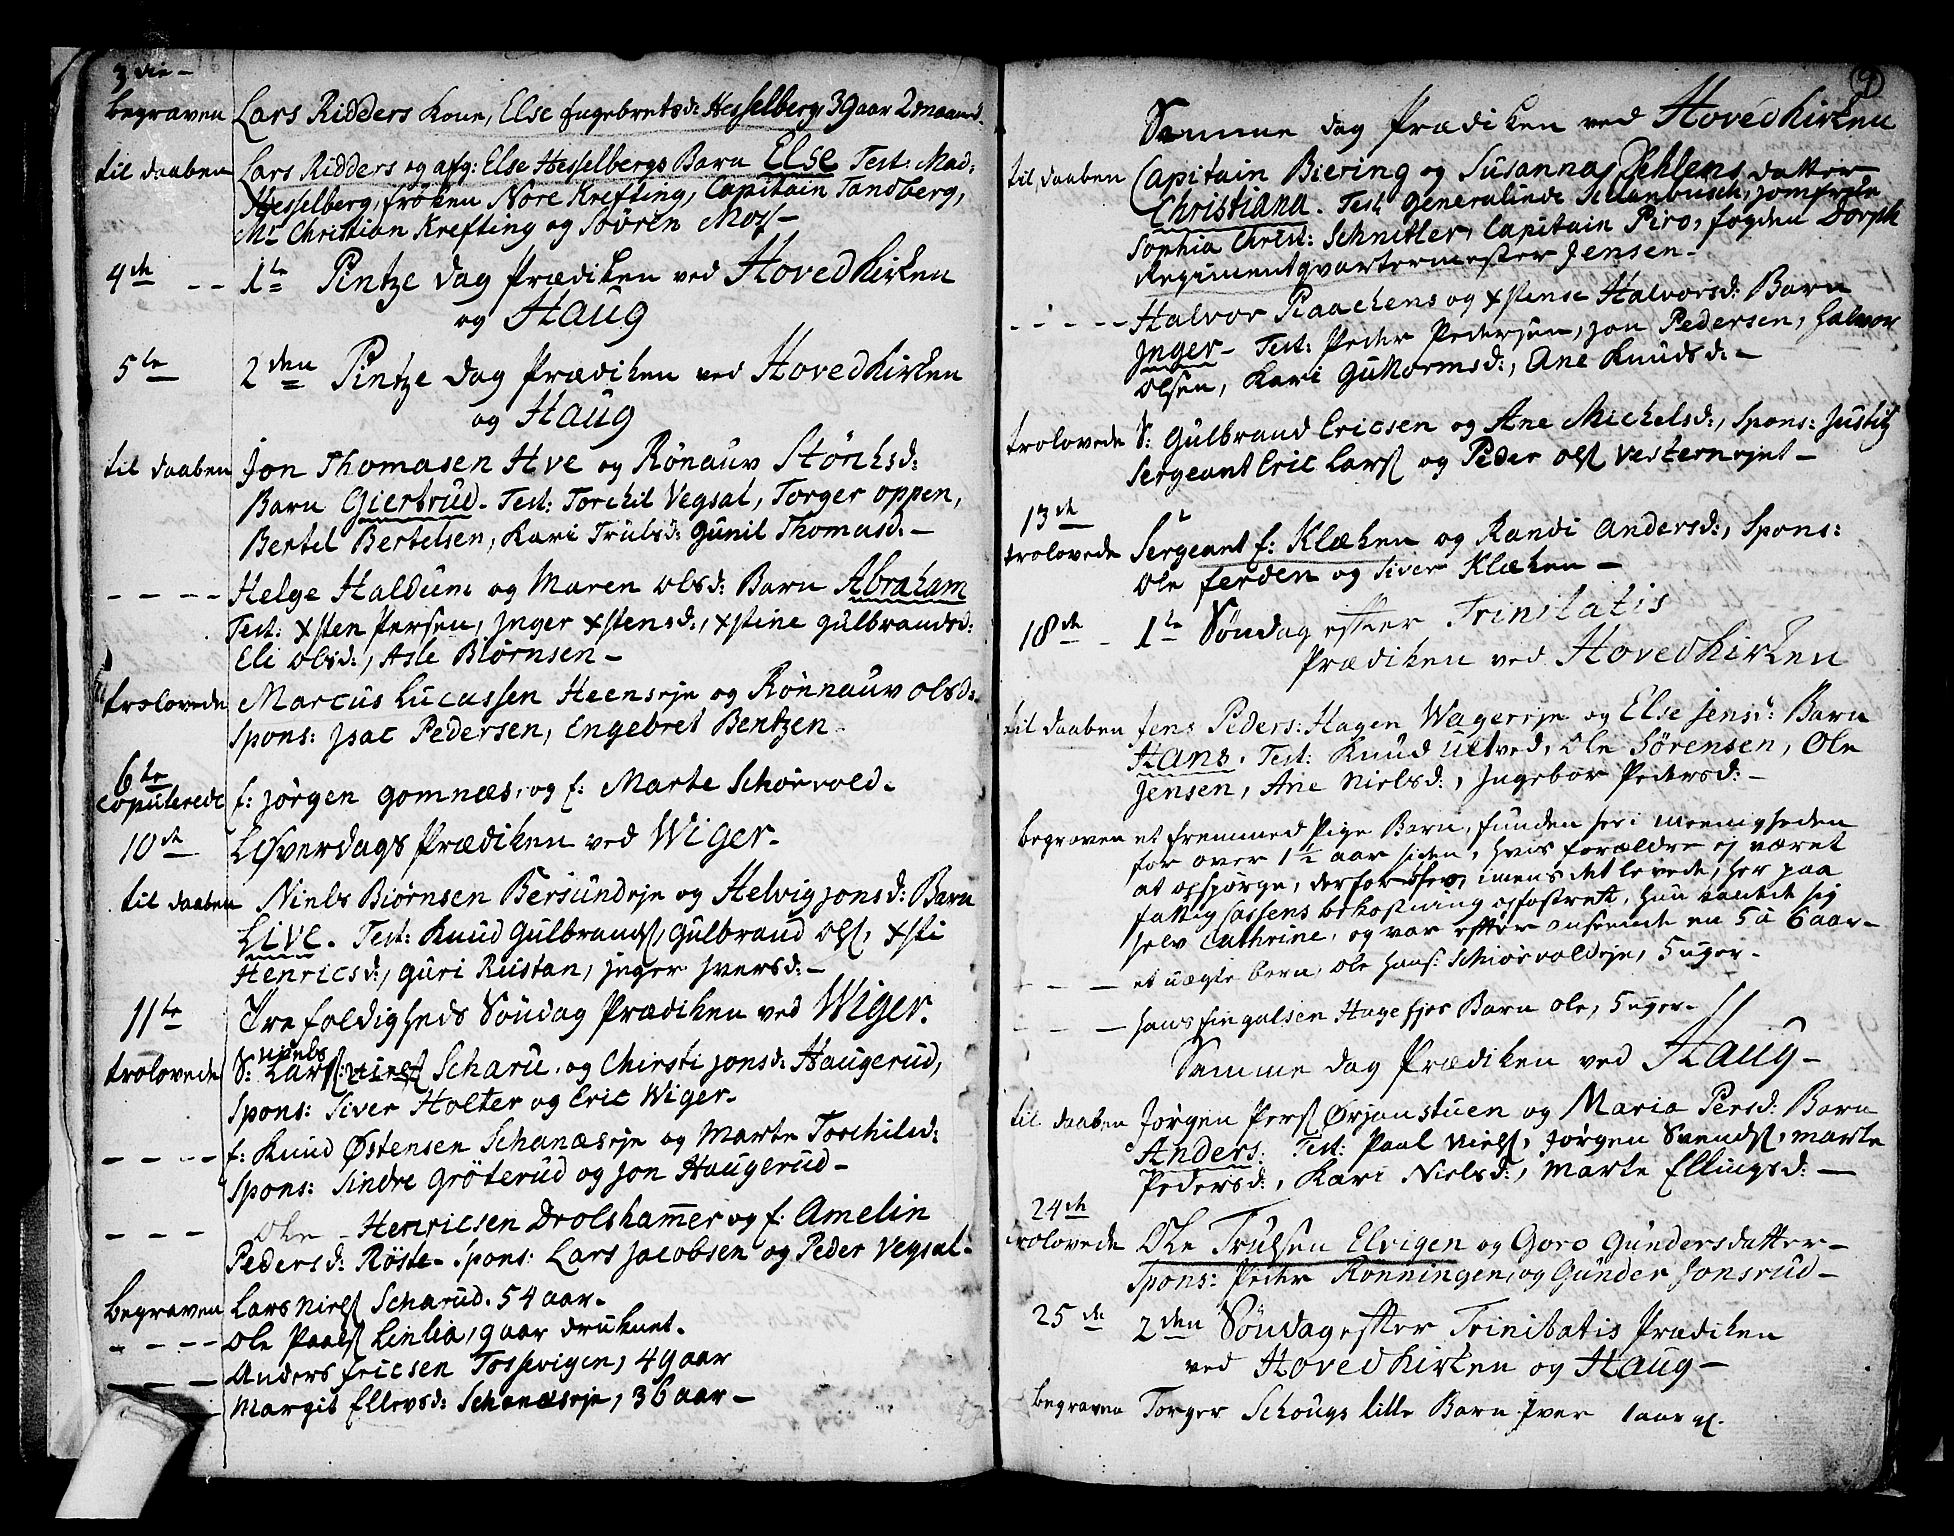 3die –
begraven Lars Ridders Kone, Else Engebretsd: Hesselberg 39 aar 2 maaned.
til daaben Lars Ridders og afg: Else Hesselbergs Barn Else Test: Mad:
Hesselberg, frøken Nore Krefting, Capitain Tandberg,
Mr Christian Krefting og Søvren Moss –
4de – – 1te Pintze dag Prædiken ved Hoved Kirken
og Haug
5te 2den Pintze dag Prædiken ved Hoved Kirken
og Haug
til daaben Jon Thomasen Hve og Rønauv Størchsd:
Barn Giertrud – Test: Torchil Vegsal, Torger oppen,
Bertel Bertelsen, Kari Trulsd: Gunil Thomasd: –
– – – – Helge Haldum og Maren olsd: Barn Abraham
Test: xsten Persen, Inger xstensd:, xstine gulbrandsd:
Eli olsd:, Asle Biørnsen –
trolovede Marcus Lucassen Heenseje og Rønnauv olsd:
Spons: Isac Pedersen, Engebret Bentzen
6te
copulerede f: Jørgen gomnæs, og f: Marte Schørvold –
10de Løverdags Prædiken ved Wiger –
til daaben Niels Biørnsen Bersundeje og Helvig jonsd: Barn
Live. Test: Knud Gulbrands, Gulbrand ols, xsti
Henricsd:, guri Rustan, Inger Iversd: –
11te Trefoldigheds Søndag Prædiken ved Wiger.
trolovede S: Niels Lars: Scharu, og Chirsti jonsd: Haugerud,
Spons: Siver Holter og Eric Wiger –
– – – – f: Knud Østensen Schanæseje og Marte Torchilsd:
Spons: Sindre Grøterud og Jon Haugerud –
– – – Ole – Henricsen Drolshammer og f: Amelin
Pedersd: Røste – Spons: Lars Jacobsen og Peder Vegsal –
begraven Lars Niels Scharud. 54 aar –
– – – – Ole Paals Linlia, 9 aar druknet.
– – – Anders Ericsen Tossevigen, 49 aar
Margit Ellevsd: Schanæseje, 36 aar –
9
Samme dag Prædiken ved Hovedkirken
til daaben Capitain Biering og Susanna Pihlens datter
Christiana. Test: Generalinde Schenbusch, jomfrue
Sophia Christ: Schnitler, Capitain Piro, fogden Dorph
Regimentqvartermester Jensen –
– – – – Halvor Raachens og xstense Halvorsd: Barn
Inger – Test: Peder Pedersen, Jon Pedersen, Halvor
olsen, Kari Guttormsd:, Ane Knudsd: –
trolovede S: Gulbrand Ericsen og Ane Michelsd:, Spons: Justitz
Sergeant Eric Lars og Peder ols Vesternejet –
13de
trolovede Sergeant f: Klæken og Randi Andersd:, Spons:
Ole ferden og Siver Klæken –
18de – 1te Søndag efter Trinitatis
Prædiken ved Hovedkirken
til daaben Jens Peders: Hagen Wagereje og Else Jensd: Barn
Hans. Test: Knud Ultved, Ole Sørensen, Ole
Jensen, Ane Nielsd:, Ingebor Pedersd: –
begraven et fremmed Pige Barn, funden her i meenigheden
for over 1½ aar siden, hvis forældre ej været
at opspørge, derfor blev, imens det levede, her paa
fattig Cassens bekostning opfostret, hun kaldte sig
selv Cathrine, og var efter anseende en 5 à 6 aar –
– – – et uægte barn, Ole Hans: Schiørvoldeje, 5 uger –
– – – Hans fingalsen Hagefjer Barn Ole, 5 uger –
Samme dag Prædiken ved Haug –
til daaben Jørgen Pers Ørjanstuen og Maria Persd: Barn
Anders. Test: Paal Niels, Jørgen Svends, Marte
Pedersd:, Kari Nielsd:, Marte Ellingsd: –
24de
trolovede Ole Trulsen Elvigen og Goro Gundersdatter –
Spons: Peder Rønningen, og Gunder Jonsrud –
25de 2den Søndag efter Trinitatis Prædiken
ved Hovedkirken og Haug –
begraven Torger Schougs lille Barn Iver 1 aar gl.